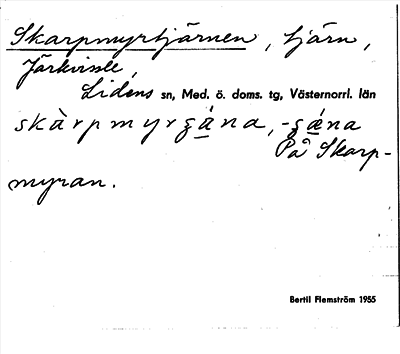 Skarpmyrtjärnen, tjärn,
Järkvissle,
Lidens sn, Med. ö. doms. tg, Västernorrl. län
skàrpmyrʒána, -ʒǽna
På Skarp-
myran.
Bertil Flemström 1955